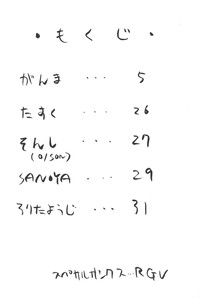 ・もくじ・
がんま ・・・ 5
たすく ・・・ 26
そんし ・・・ 27
(O/SON)
SANOYA ・・・ 29
ろりたようじ ・・・ 31
スペカルサンクス…RGV